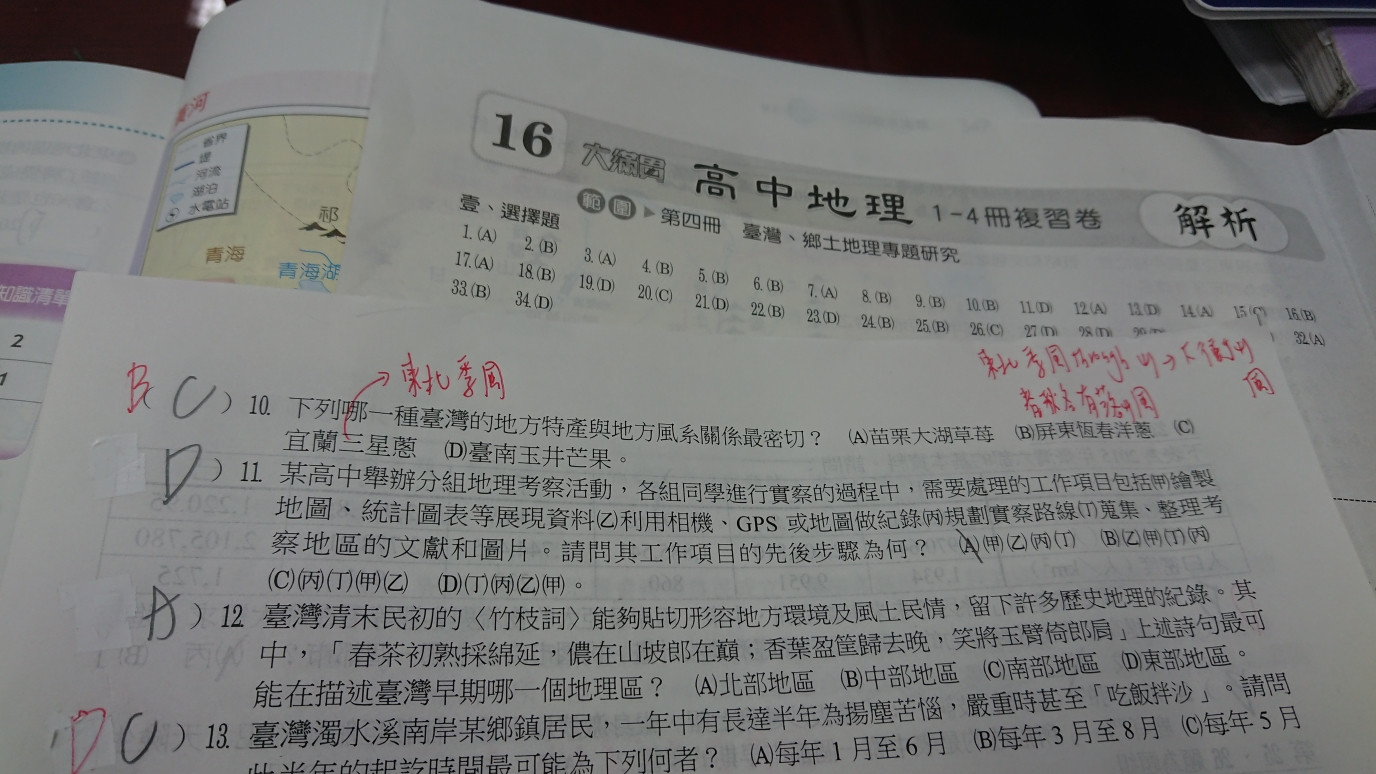 黃河
省界
堤
河流
湖泊
水電站
祁
青海
青海湖
知識清單
2
1
16 大滿貫 高中地理 1-4冊複習卷 解析
範圍 ▶ 第四冊 臺灣、鄉土地理專題研究
壹、選擇題
1.(A) 2.(B) 3.(A) 4.(B) 5.(B) 6.(B) 7.(A) 8.(B) 9.(B) 10.(B) 11.(D) 12.(A) 13.(D) 14.(A) 15.(C) 16.(B)
17.(A) 18.(B) 19.(D) 20.(C) 21.(D) 22.(B) 23.(D) 24.(B) 25.(B) 26.(C) 27.(D) 28.(D) 32.(A)
33.(B) 34.(D)
東北季風
東北季風
春秋冬有落山風
B( C )10. 下列哪一種臺灣的地方特產與地方風系關係最密切? (A)苗栗大湖草莓 (B)屏東恆春洋蔥 (C)
宜蘭三星蔥 (D)臺南玉井芒果。
D )11. 某高中舉辦分組地理考察活動,各組同學進行實察的過程中,需要處理的工作項目包括㈙繪製
地圖、統計圖表等展現資料㈚利用相機、GPS 或地圖做紀錄㈛規劃實察路線㈜蒐集、整理考
察地區的文獻和圖片。請問其工作項目的先後步驟為何? (A)(甲)(乙)(丙)(丁) (B)(乙)(甲)(丁)(丙)
(C)(丙)(丁)(甲)(乙) (D)(丁)(丙)(乙)(甲)。
A )12. 臺灣清末民初的〈竹枝詞〉能夠貼切形容地方環境及風土民情,留下許多歷史地理的紀錄。其
中,「春茶初熟採綿延,儂在山坡郎在巔;香葉盈筐歸去晚,笑將玉臂倚郎肩」上述詩句最可
能在描述臺灣早期哪一個地理區? (A)北部地區 (B)中部地區 (C)南部地區 (D)東部地區。
D C )13. 臺灣濁水溪南岸某鄉鎮居民,一年中有長達半年為揚塵苦惱,嚴重時甚至「吃飯拌沙」。請問
此半年的起訖時間最可能為下列何者? (A)每年1月至6月 (B)每年3月至8月 (C)每年5月